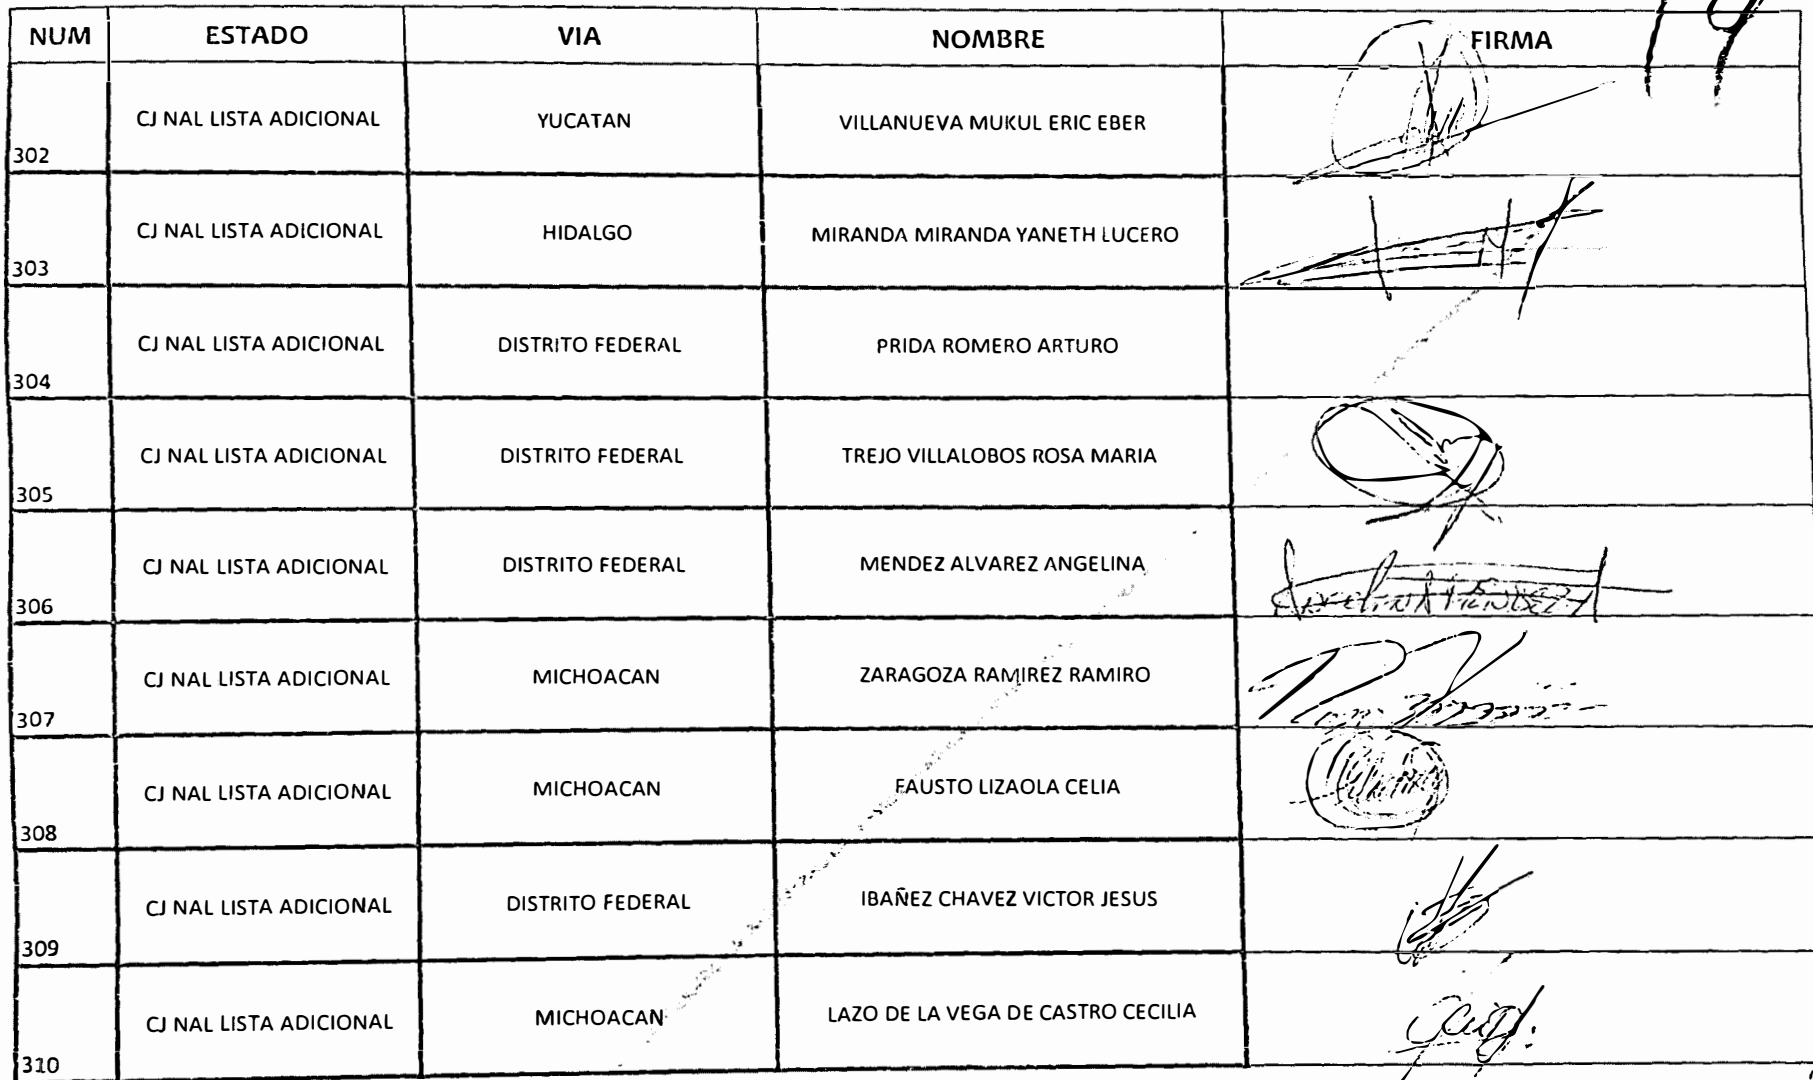 NUM ESTADO VIA NOMBRE FIRMA
302 CJ NAL LISTA ADICIONAL YUCATAN VILLANUEVA MUKUL ERIC EBER
303 CJ NAL LISTA ADICIONAL HIDALGO MIRANDA MIRANDA YANETH LUCERO
304 CJ NAL LISTA ADICIONAL DISTRITO FEDERAL PRIDA ROMERO ARTURO
305 CJ NAL LISTA ADICIONAL DISTRITO FEDERAL TREJO VILLALOBOS ROSA MARIA
306 CJ NAL LISTA ADICIONAL DISTRITO FEDERAL MENDEZ ALVAREZ ANGELINA
307 CJ NAL LISTA ADICIONAL MICHOACAN ZARAGOZA RAMIREZ RAMIRO
308 CJ NAL LISTA ADICIONAL MICHOACAN FAUSTO LIZAOLA CELIA
309 CJ NAL LISTA ADICIONAL DISTRITO FEDERAL IBAÑEZ CHAVEZ VICTOR JESUS
310 CJ NAL LISTA ADICIONAL MICHOACAN LAZO DE LA VEGA DE CASTRO CECILIA